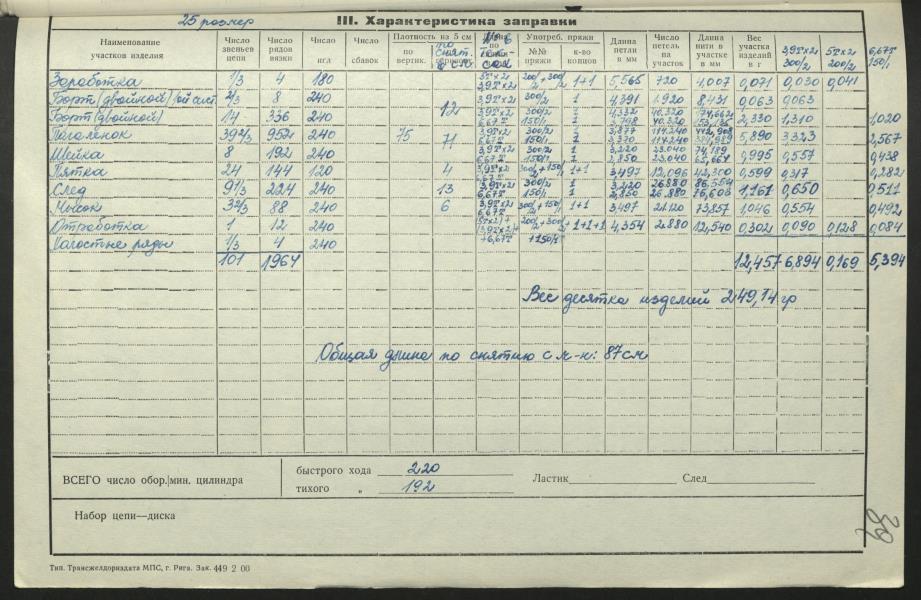 25 размер
III. Характеристика заправки
Наименование участков изделия | Число звеньев цепи | Число рядов вязки | Число игл | Число сбавок | Плотность на 5 см | по вертик. | Употреб. пряжи | №№ пряжи | к-во концов | Длина петли в мм | Число петель на участок | Длина нити в участке в мм | Вес участка изделий в г | 3,9Тx2x 300/2 | 5Тx2x 200/2 | 6,67Т 150/1
Заработка 1/3 4 180 5Тx2x 3,9Тx2x 200/2+300/2 1+1 5,565 720 4,007 0,071 0,030 0,041
Борт (двойной) 2/3 8 240 3,9Тx2x 300/2 1 4,391 1.920 8,431 0,063 0,063
Борт (двойной) 14 336 240 12 3,9Тx2x 300/2 1 4,332 40.320 174,662
6,67Т 150/1 1 3,798 40.320 2,330 1,310 1,020
Паголенок 39 2/3 952 240 75 71 3,9Тx2x 300/2 1 3,877 114.240 442,908
6,67Т 150/1 1 114.240 5,890 3,323 2,567
Шейка 8 192 240 3,9Тx2x 300/2 1 3,220 23.040 74,189
6,67Т 150/1 1 2,850 23.040 65,664 0,995 0,557 0,438
Пятка 24 144 120 4 3,9Тx2x 6,67Т 300/2+150/1 1+1 3,497 12,096 42,300 0,599 0,317 0,282
След 9 1/3 224 240 13 3,9Тx2x 300/2 1 3,220 26.880 86.554
6,67Т 150/1 1 2,850 26.880 76,608 1,161 0,650 0,511
Мысок 3 2/3 88 240 6 3,9Тx2x 6,67Т 300/2+150/1 1+1 3,497 21.120 73.857 1,046 0,554 0,492
Отработка 1 12 240 200/2+300/2 1+1+1 4,354 2.880 12,540 0,302 0,090 0,128 0,084
Холостые ряды 1/3 4 240 +6,67Т +150/1
101 1964 12,457 6,894 0,169 5,394
Вес десятка изделий 249,14 гр
Общая длина по снятию с м-н: 87 см
ВСЕГО число обор. мин. цилиндра
быстрого хода 220
тихого „ 192
Ластик
След
Набор цепи—диска
39
Тип. Трансжелдориздата МПС, г. Рига. Зак. 449 2 00